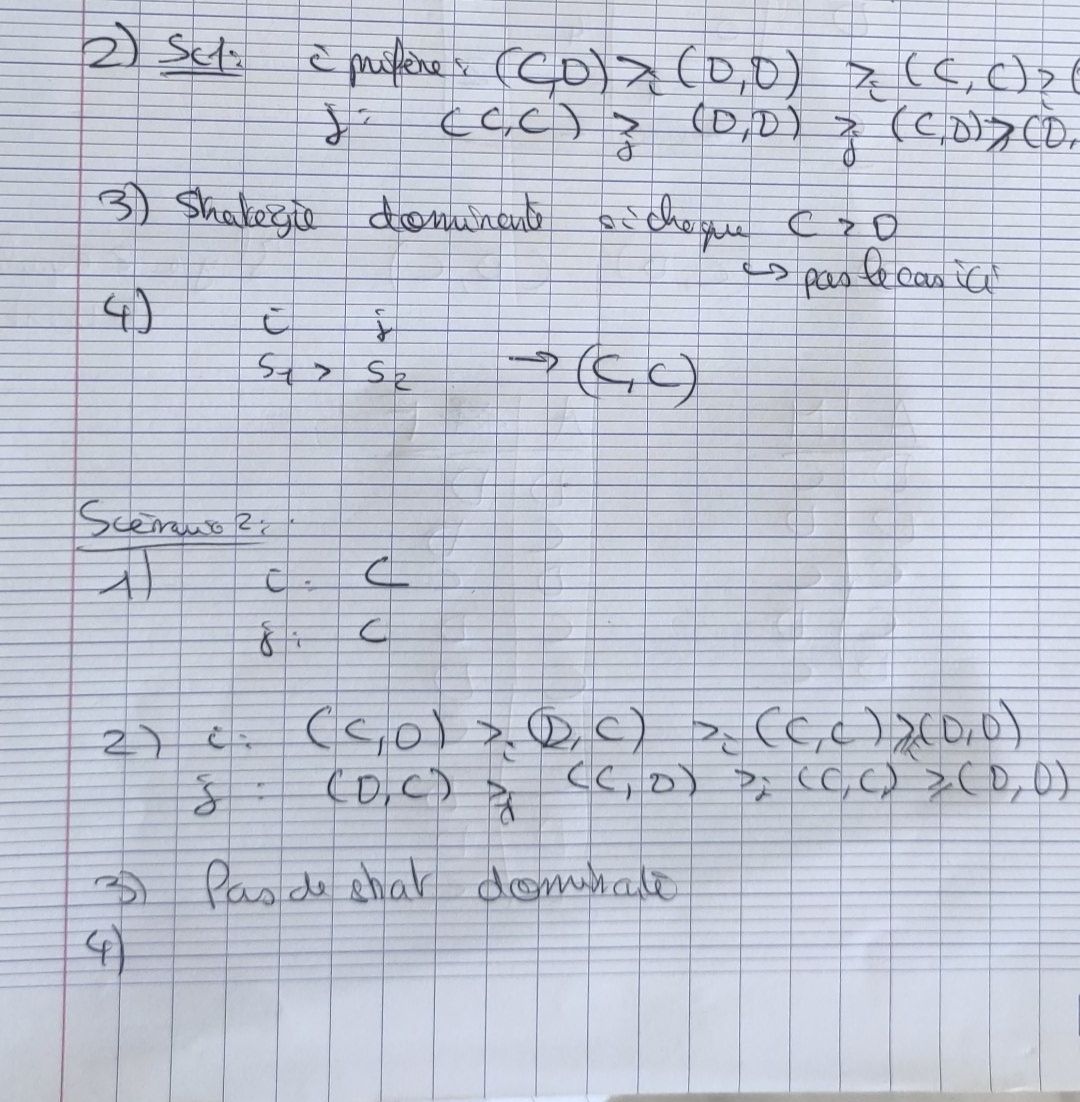 2) Sc1: i préfère: (C,D) ≥i (D,D) ≥i (C,C) ≥i (
j: (C,C) ≥j (D,D) ≥j (C,D) ≥ (D,
3) Strategie dominente si chaque C > D
↳ pas le cas ici
4) i j
S1 > S2 → (C,C)
Scénario 2:
1) i: C
j: C
2) i: (C,D) ≥i (D,C) ≥i (C,C) ≥i (D,D)
j: (D,C) ≥j (C,D) ≥j (C,C) ≥ (D,D)
3) Pas de strat
4)